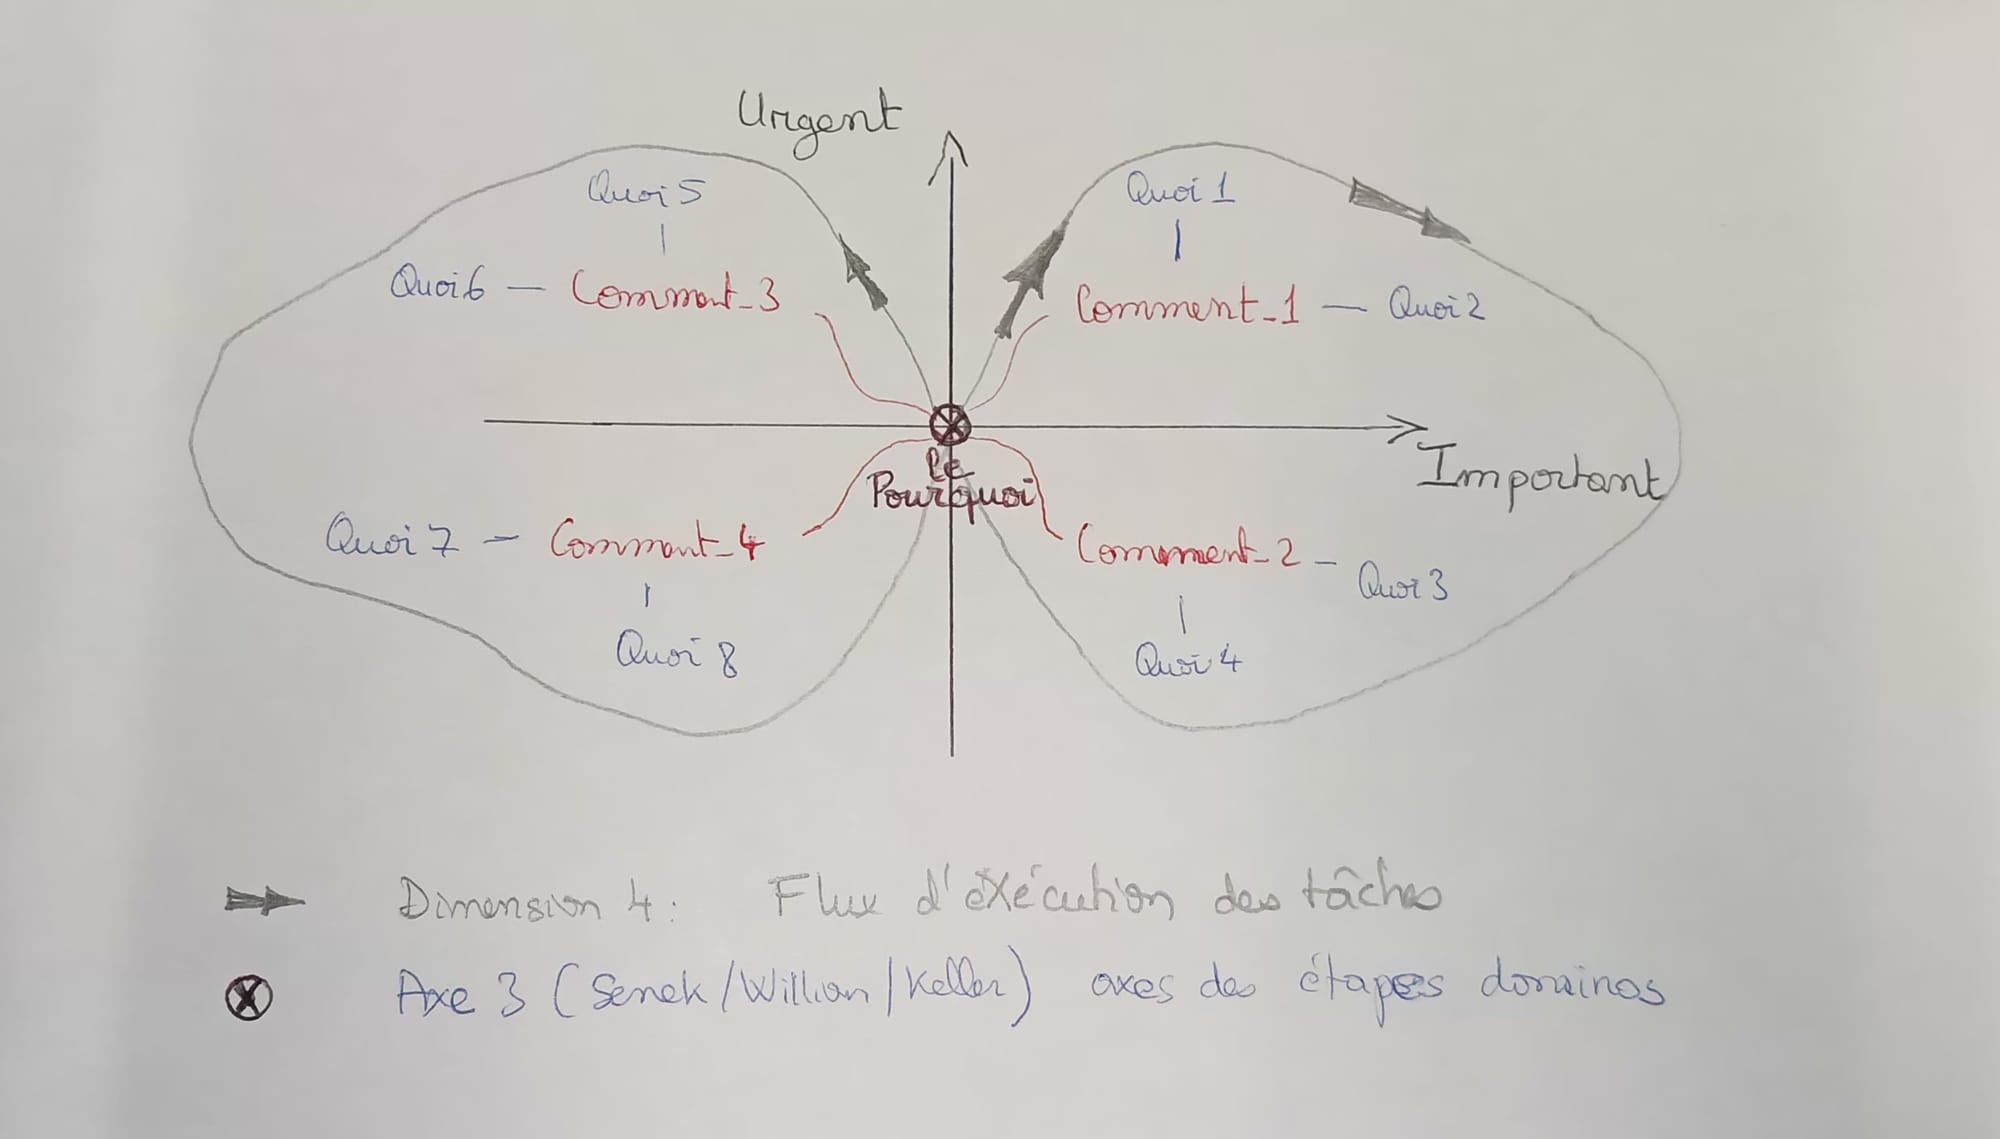 Urgent
Quoi 5
Quoi 1
Quoi 6 — Comment_3
Comment_1 — Quoi 2
Le
Pourquoi
Important
Quoi 7 — Comment_4
Comment_2 - Quoi 3
Quoi 8
Quoi 4
Dimension 4 : Flux d'éxécution des tâches
Axe 3 (Senek/Willian/Keller) axes des étapes dominos